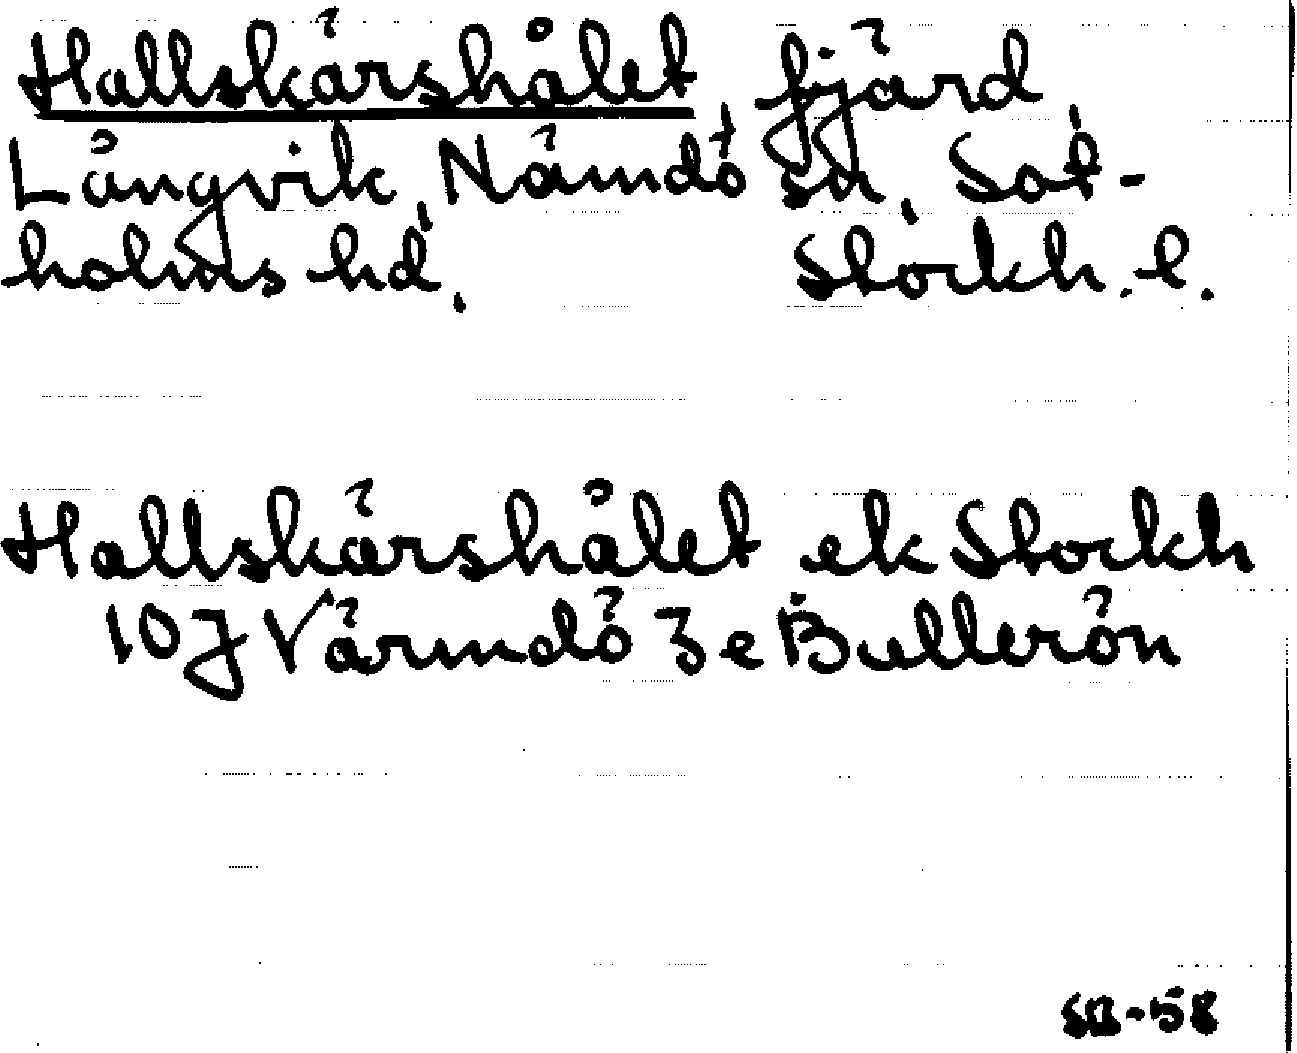 Hallskärshålet, fjärd,
Långvik, Nämdö sn, Sot-
holms hd, Stockh. l.
Hallskärshålet ek Stockh
10J Värmdö 3e Bullerön
SB-58